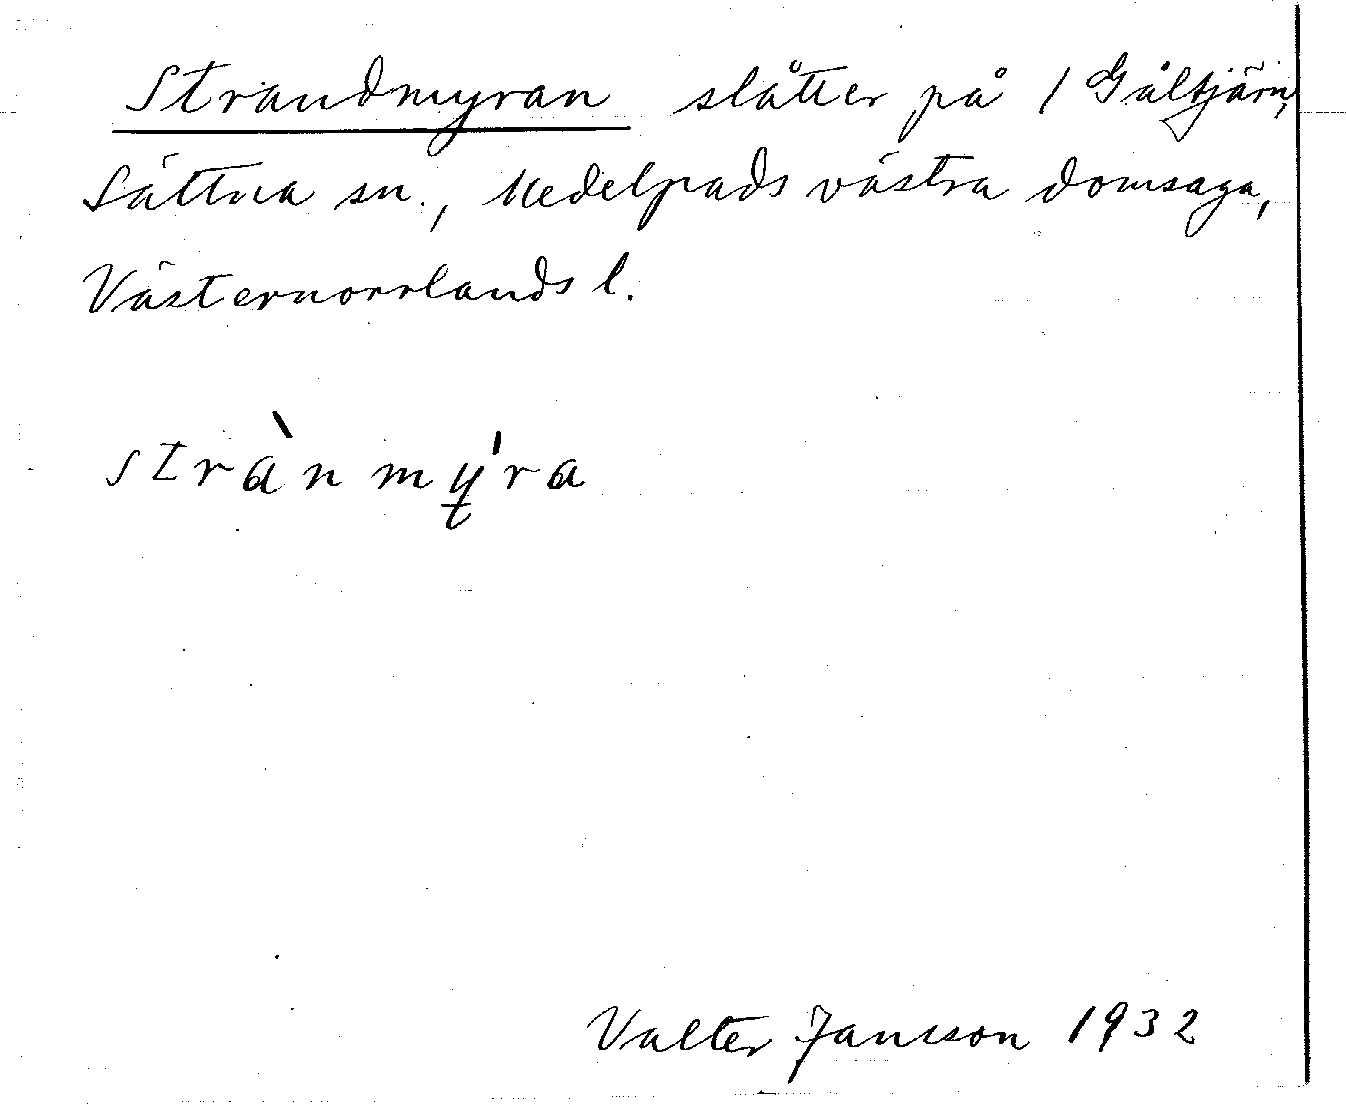 Strandmyran slåtter på 1 Gåltjärn,
Sättna sn., Medelpads västra domsaga,
Västernorrlands l.
strànmy̵̍ra
Valter Jansson 1932